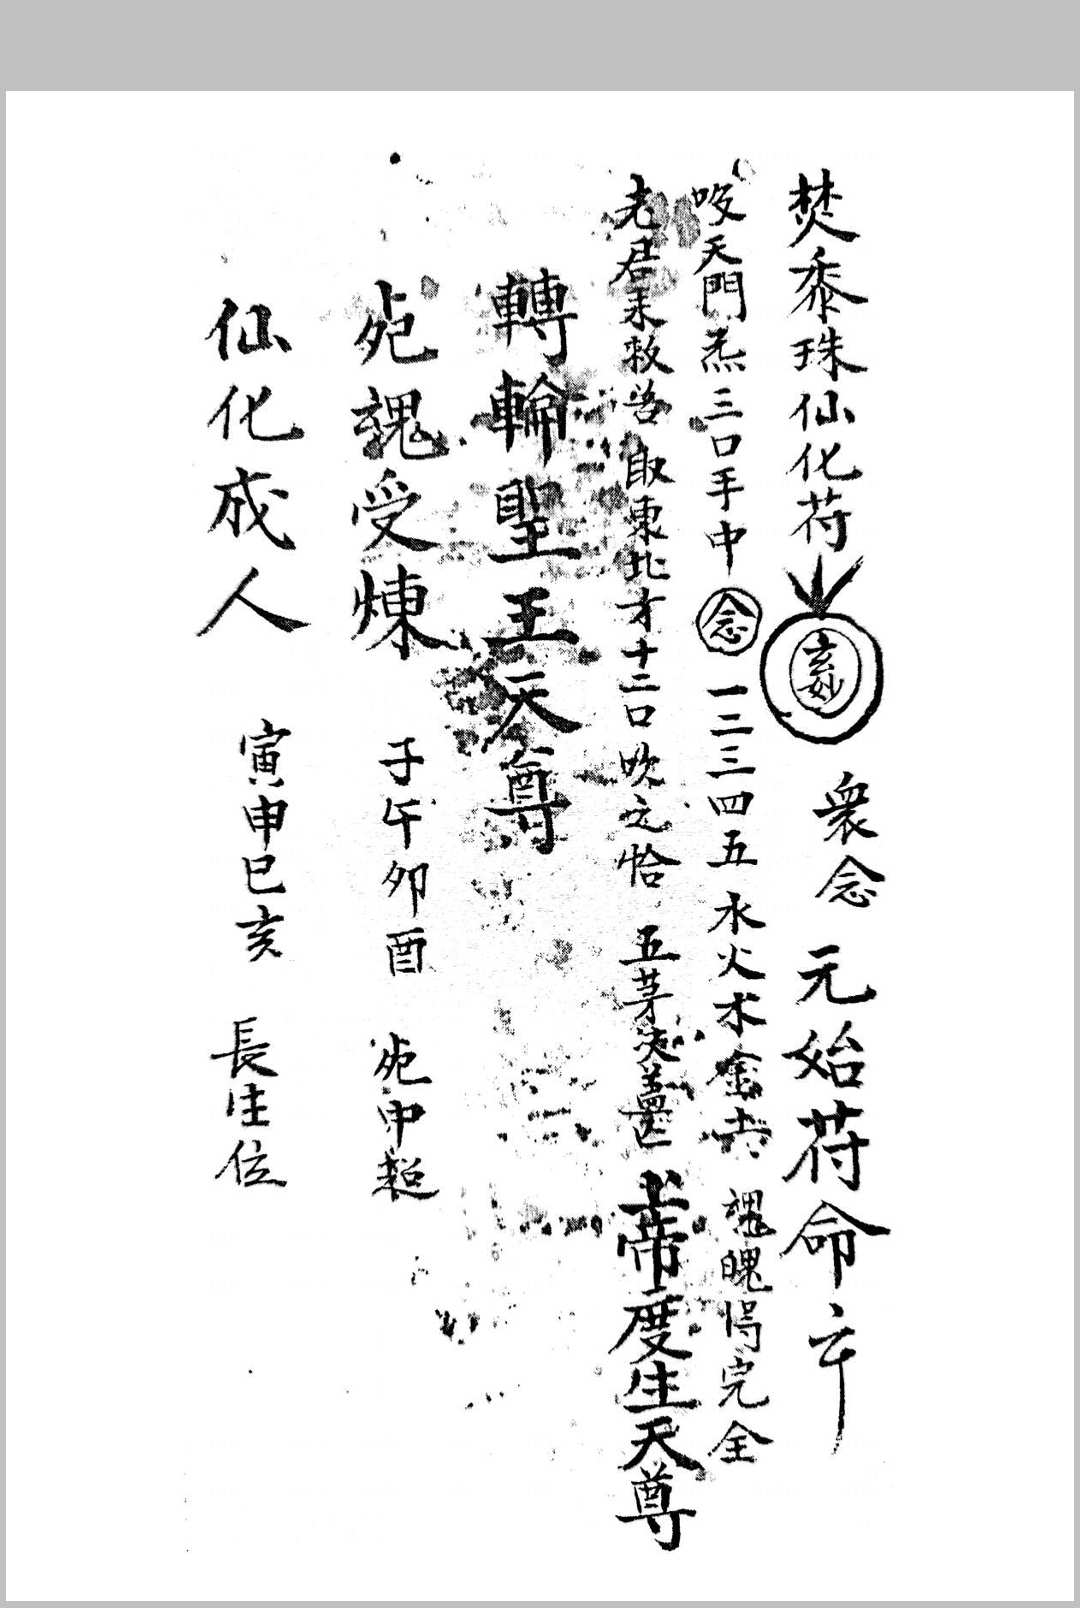 焚黍珠仙化符 玄妙 衆念 元始符命 云
吸天門炁三口手中 念 一二三四五 水火木金土 魂魄得完全
老君来救苦 取東北方十二口吹之 恰 五芽 蓋 上帝度生天尊
轉輪聖王天尊
魂受煉 子午卯酉 中超
仙化成人 寅申巳亥 長生位